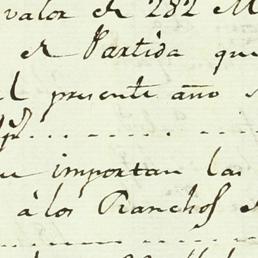 valor de 282 M
de Partida que
el presente año
que importan las
à los Ranchos